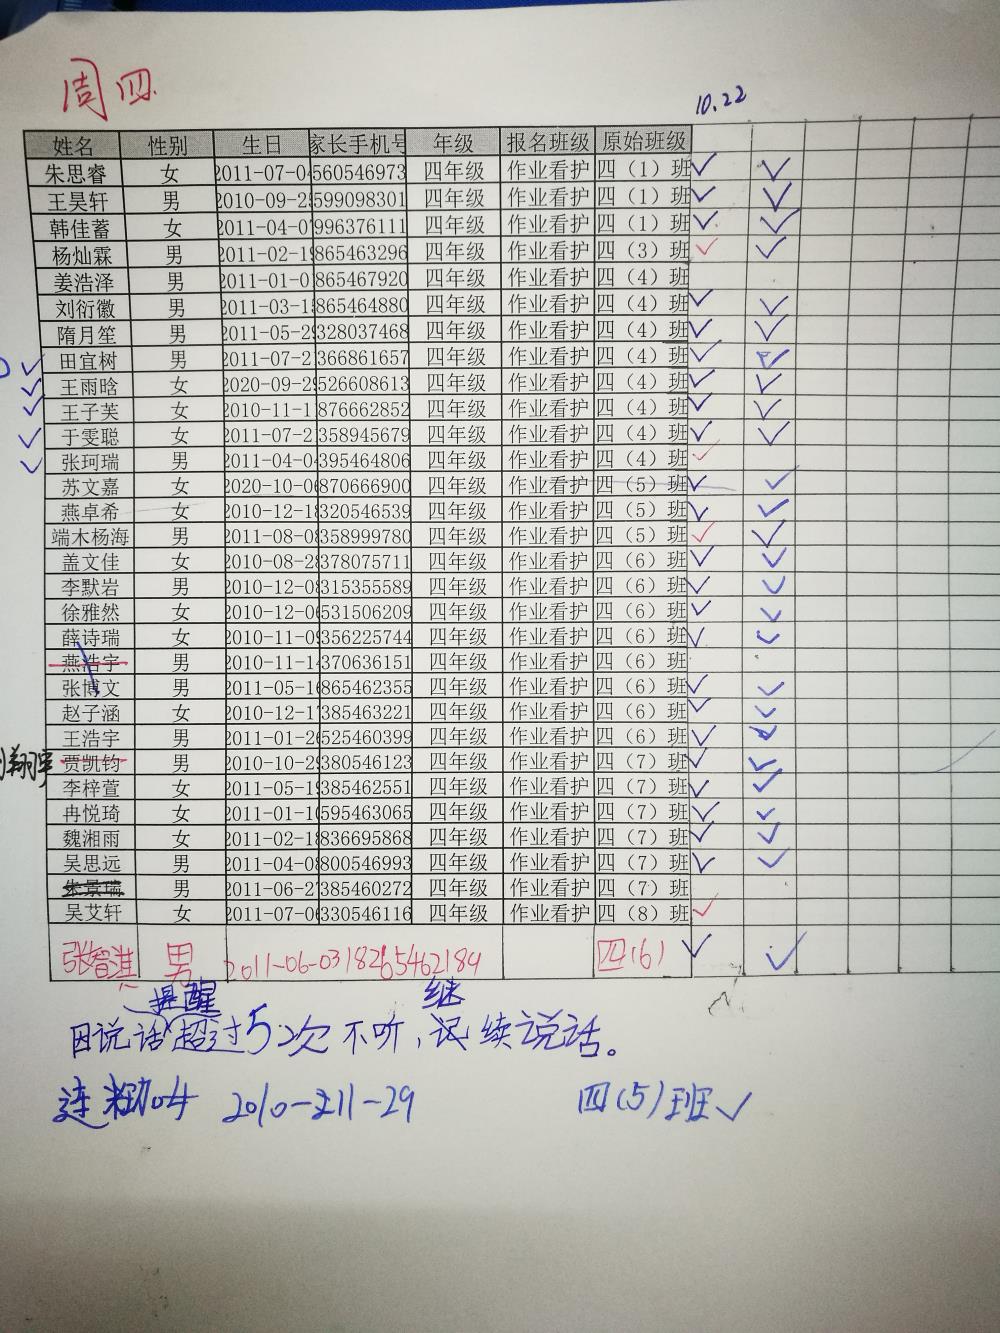 周四
10.22
姓名 性别 生日 家长手机号 年级 报名班级 原始班级
朱思睿 女 2011-07-04 560546973 四年级 作业看护 四（1）班 ✓ ✓
王昊轩 男 2010-09-25 599098301 四年级 作业看护 四（1）班 ✓ ✓
韩佳蓄 女 2011-04-07 996376111 四年级 作业看护 四（1）班 ✓ ✓
杨灿霖 男 2011-02-19 865463296 四年级 作业看护 四（3）班 ✓ ✓
姜浩泽 男 2011-01-0 865467920 四年级 作业看护 四（4）班
刘衍徽 男 2011-03-15 865464880 四年级 作业看护 四（4）班 ✓ ✓
隋月笙 男 2011-05-29 328037468 四年级 作业看护 四（4）班 ✓ ✓
✓ 田宜树 男 2011-07-2 366861657 四年级 作业看护 四（4）班 ✓ ✓
✓ 王雨晗 女 2020-09-29 526608613 四年级 作业看护 四（4）班 ✓ ✓
✓ 王子芙 女 2010-11-1 876662852 四年级 作业看护 四（4）班 ✓ ✓
✓ 于雯聪 女 2011-07-2 358945679 四年级 作业看护 四（4）班 ✓ ✓
✓ 张珂瑞 男 2011-04-04 395464806 四年级 作业看护 四（4）班 ✓
苏文嘉 女 2020-10-06 870666900 四年级 作业看护 四（5）班 ✓ ✓
燕卓希 女 2010-12-18 320546539 四年级 作业看护 四（5）班 ✓ ✓
端木杨海 男 2011-08-08 358999780 四年级 作业看护 四（5）班 ✓ ✓
盖文佳 女 2010-08-28 378075711 四年级 作业看护 四（6）班 ✓ ✓
李默岩 男 2010-12-08 315355589 四年级 作业看护 四（6）班 ✓ ✓
徐雅然 女 2010-12-06 531506209 四年级 作业看护 四（6）班 ✓ ✓
薛诗瑞 女 2010-11-09 356225744 四年级 作业看护 四（6）班 ✓ ✓
燕浩宇 男 2010-11-14 370636151 四年级 作业看护 四（6）班
张博文 男 2011-05-16 865462355 四年级 作业看护 四（6）班 ✓ ✓
赵子涵 女 2010-12-17 385463221 四年级 作业看护 四（6）班 ✓ ✓
王浩宇 男 2011-01-26 525460399 四年级 作业看护 四（6）班 ✓ ✓
翔宇 贾凯钧 男 2010-10-29 380546123 四年级 作业看护 四（7）班 ✓ ✓
李梓萱 女 2011-05-19 385462551 四年级 作业看护 四（7）班 ✓ ✓
冉悦琦 女 2011-01-10 595463065 四年级 作业看护 四（7）班 ✓ ✓
魏湘雨 女 2011-02-18 836695868 四年级 作业看护 四（7）班 ✓ ✓
吴思远 男 2011-04-08 800546993 四年级 作业看护 四（7）班 ✓ ✓
朱景瑞 男 2011-06-27 385460272 四年级 作业看护 四（7）班
吴艾轩 女 2011-07-06 330546116 四年级 作业看护 四（8）班 ✓
张智淮 男 2011-06-03 18265462189 四（6） ✓ ✓
提醒 继
因说话超过5次不听，续说话。
2010-11-29 四（5）班 ✓